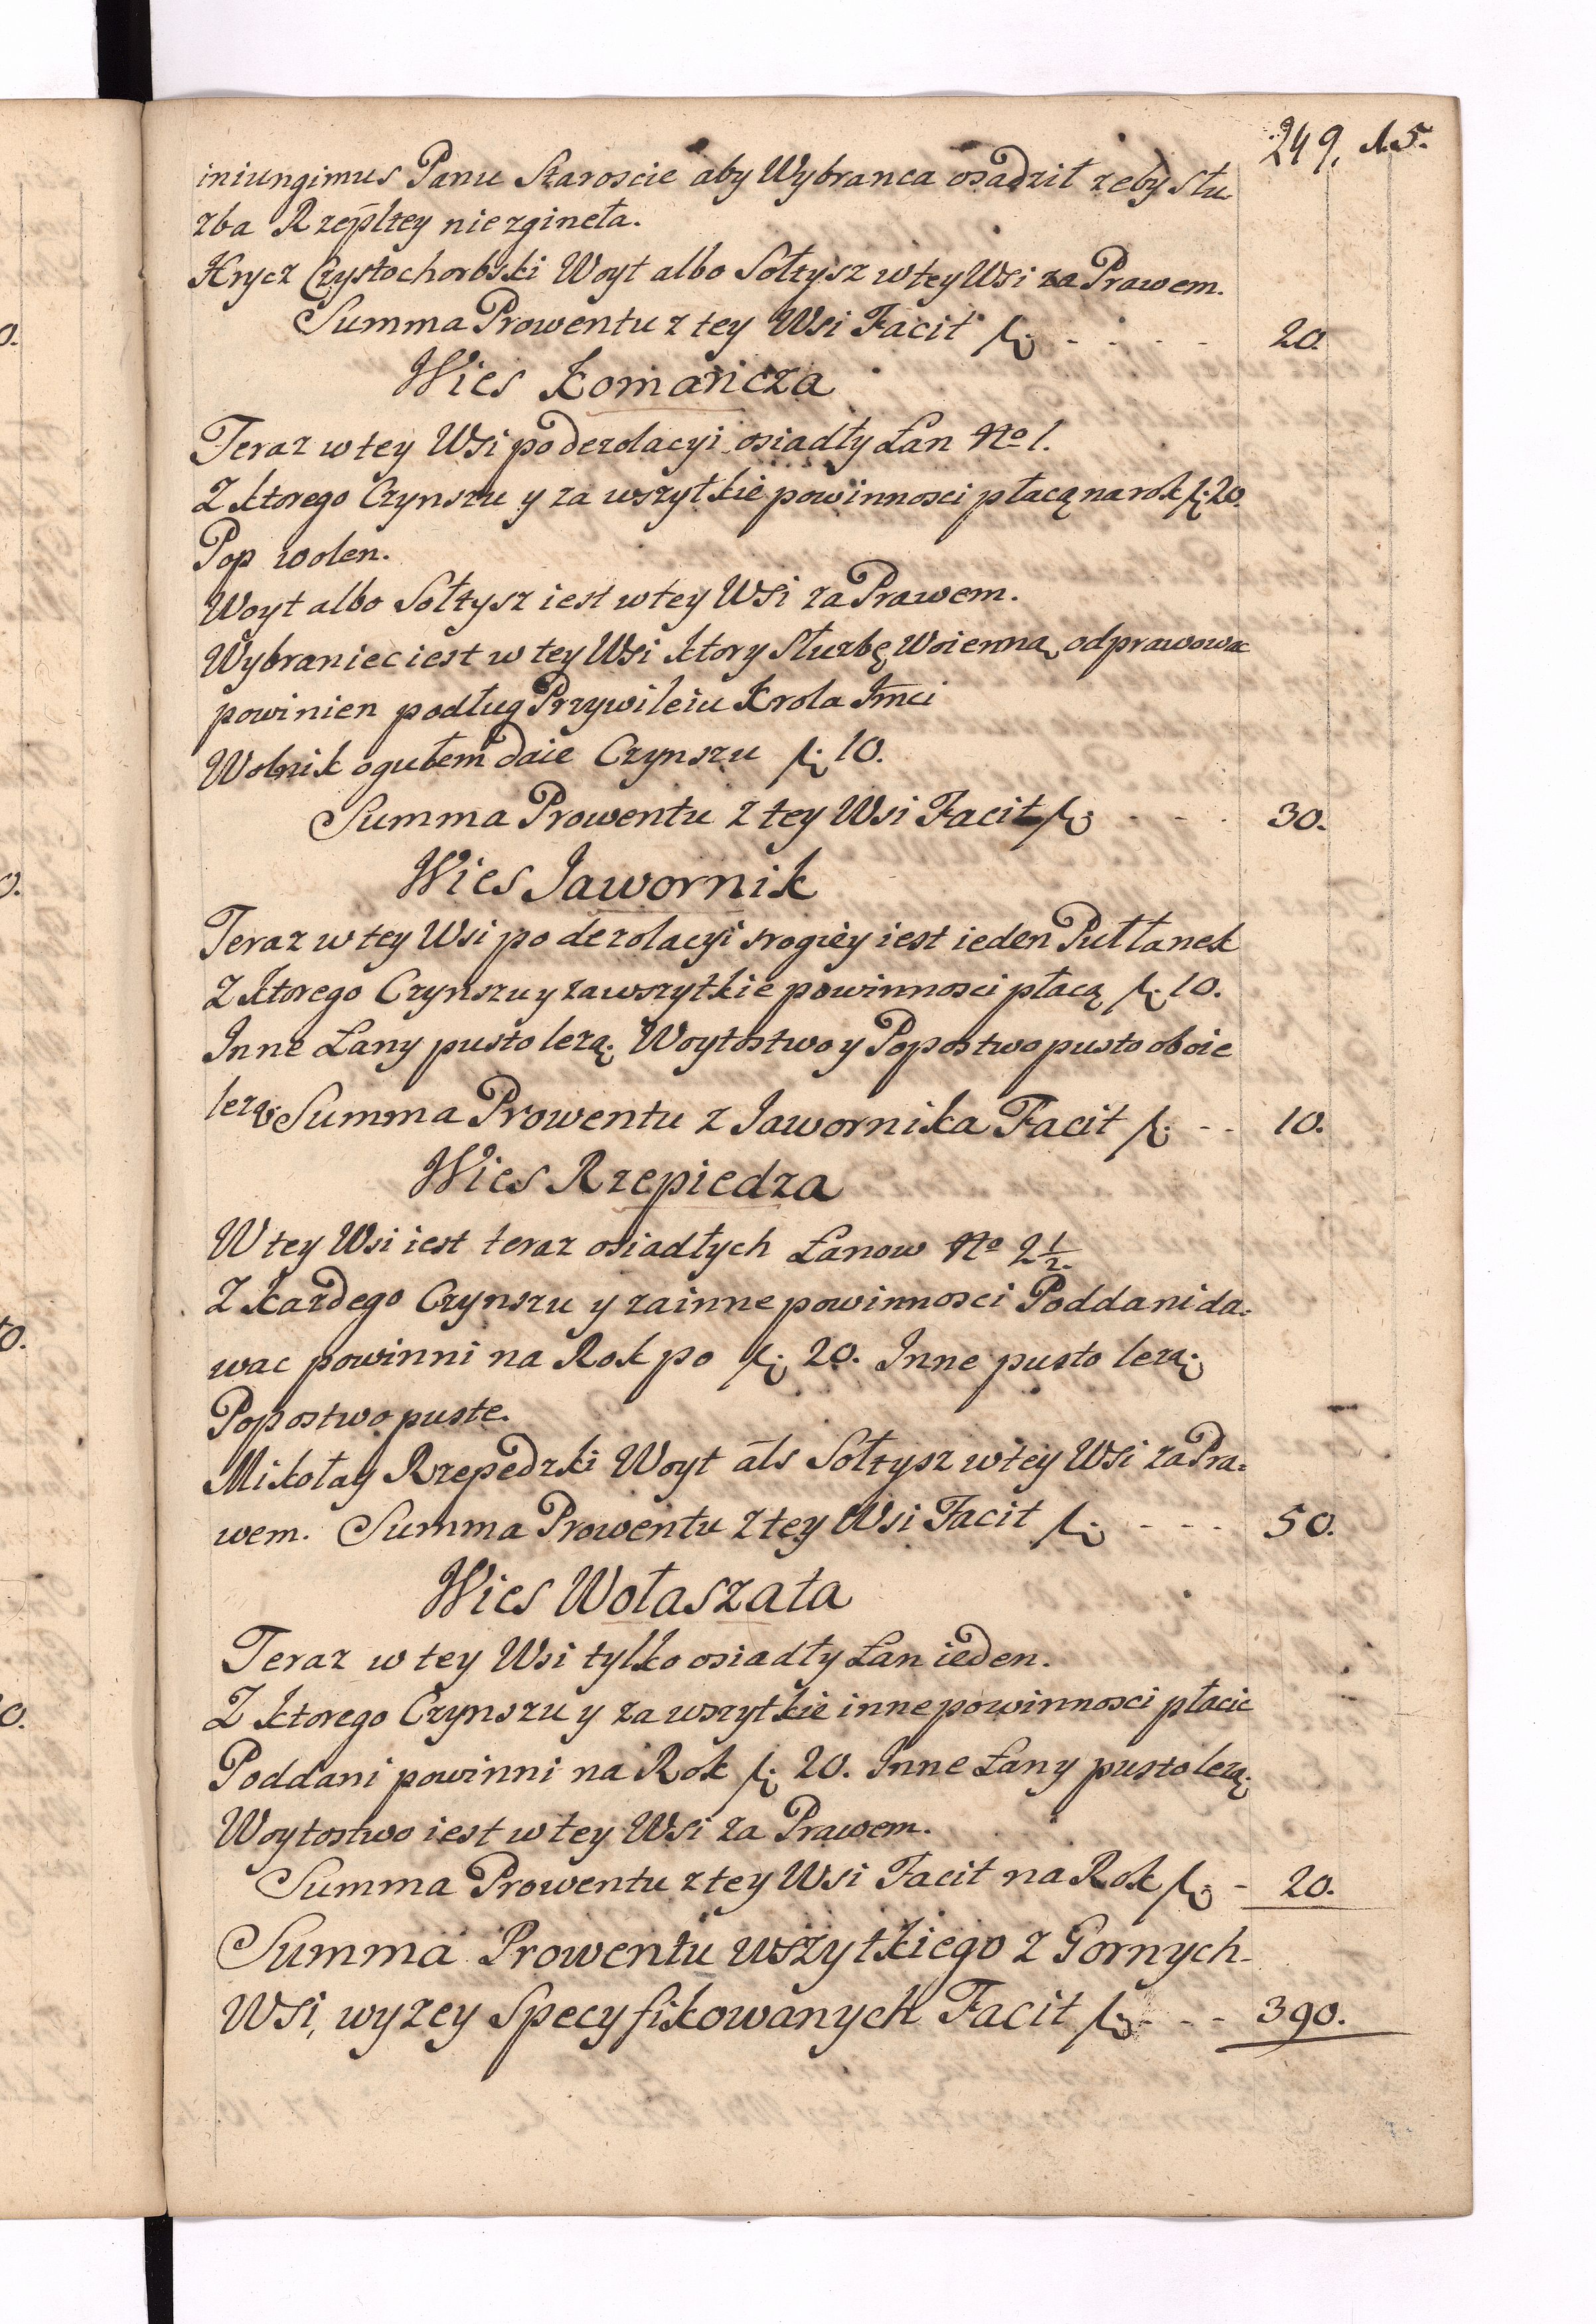 249. 15.
iniungimus Panu Staroscie aby Wybranca osadził zeby słu
zba Rzepltey nie zgineła.
Hrycz Czystochorbski Woyt albo Sołtysz w tey Wsi za Prawem.
Summa Prowentu z tey Wsi Facit f. - - - - 20.
Wies Komancza
Teraz w tey Wsi po dezolacyi osiadły Łan No 1.
Z ktorego Czynszu y za wszytkie powinnosci płacą na rok f. 20.
Pop wolen.
Woyt albo Sołtysz iest w tey Wsi za Prawem.
Wybraniec iest w tey Wsi ktory Służbę Woienną odprawowac
powinien podług Przywileiu Krola Jmci
Wolnik ogułem daie Czynszu f. 10.
Summa Prowentu z tey Wsi Facit f. - - - 30.
Wies Jawornik
Teraz w tey Wsi po dezolacyi srogiey iest ieden Pułłanek
Z ktorego Czynszu y za wszytkie powinnosci płacą f. 10.
Inne Łany pusto lezą. Woytostwo y Popostwo pusto oboie
lezą. Summa Prowentu z Jawornika Facit f. - - 10.
Wies Rzepiedza
W tey Wsi iest teraz osiadłych Łanow No 2 1/2.
Z kazdego Czynszu y za inne powinnosci Poddani da=
wac powinni na Rok po f. 20. Inne pusto lezą.
Popostwo puste.
Mikołay Rzepedzki Woyt als Sołtysz w tey Wsi za Pra=
wem. Summa Prowentu z tey Wsi Facit f. - - - 50.
Wies Wołaszata
Teraz w tey Wsi tylko osiadły Łan ieden.
Z ktorego Czynszu y za wszytkie inne powinnosci płacic
Poddani powinni na Rok f. 20. Inne Łany pusto lezą.
Woytostwo iest w tey Wsi za Prawem.
Summa Prowentu z tey Wsi Facit na Rok f. - 20.
Summa Prowentu wszytkiego z Gornych
Wsi, wyzey Specyfikowanych Facit f. - - - 390.